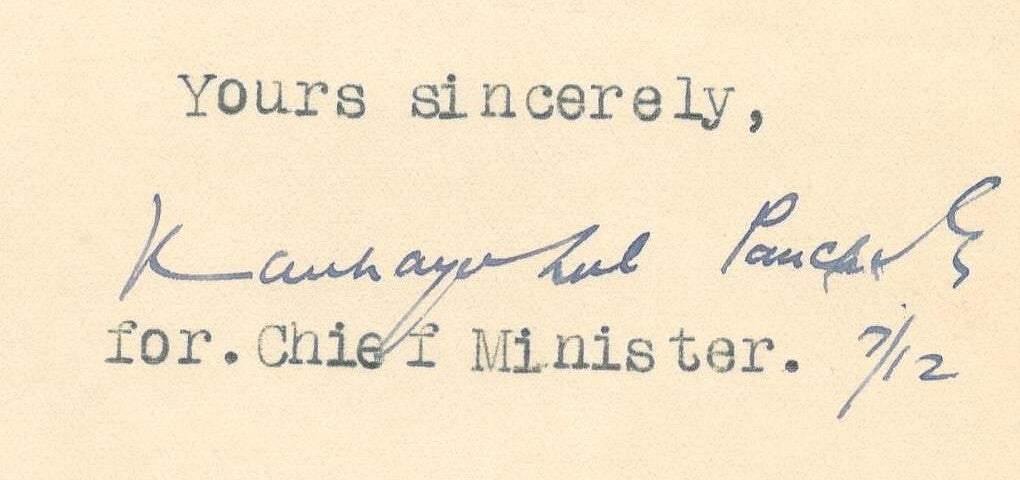 Yours sincerely,
Kanhayalal Pancholy
for. Chief Minister. 7/12